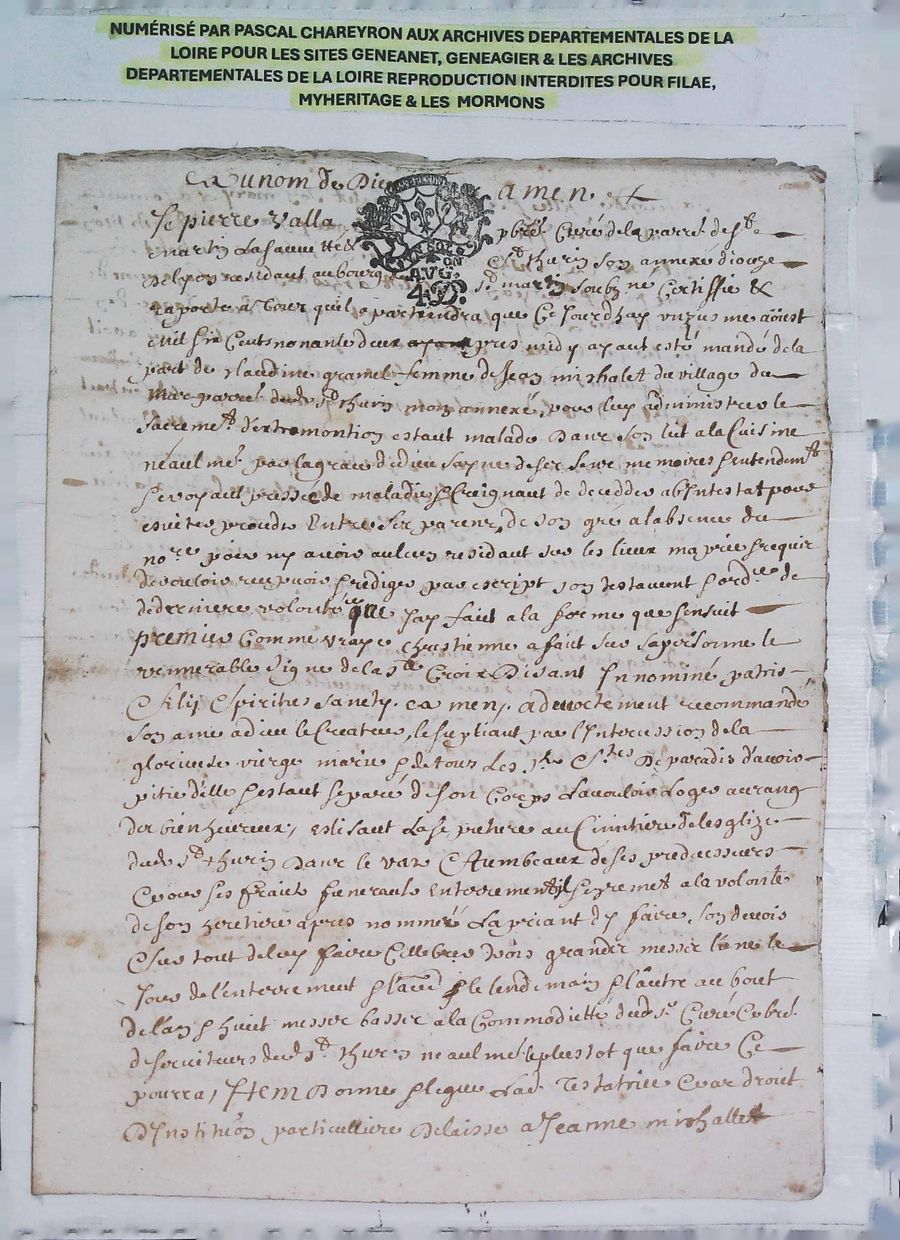 NUMÉRISÉ PAR PASCAL CHAREYRON AUX ARCHIVES DEPARTEMENTALES DE LA
LOIRE POUR LES SITES GENEANET, GENEAGIER & LES ARCHIVES
DEPARTEMENTALES DE LA LOIRE REPRODUCTION INTERDITES POUR FILAE,
MYHERITAGE & LES MORMONS
Au nom de Dieu amen
Je pierre Valla pbre Curé de la parre de st
martin La sauvetté & st thurin son annexe
de lyon residant au bourg st martin soubzné Certiffie &
raporte à tour quil apartiendra que Ce Jourdhuy unziesme aoust
mil six Cents nonante deux apres midy ayant esté mandé de la
part de Claudine gramel femme de Jean mishalet du village du
parre dud st thurin mon annexe, pour luy administrer le
sacremt d'extremontion estant malade dans son lit a la Cuisine
neaulmé par la grace de dieu sayne de ses sens memoires & entendemt
se voyant pressée de maladie & Craignant de decedder abintestat pour
esviter proudes Entre ses parens, de son gré a l'absence du
nore pour ny avoir aulcun residant sur les lieux ma prié & requis
de vouloir recepvoir & rediger par escript son testament & ordce de
de derniere volonté que Jay fait a la forme que sensuit
premier Comme vraye chrestienne a fait sur sa personne le
vennerable signe de la ste Croix Disant In nominé patris
& filij & spiritus sancty. amen, a devoctement recommandé
son ame a dieu le Createur, le supliant par l'Intercession de la
glorieuse vierge marie & de tous les sts & stes de paradis d'avoir
pitié d'elle & estant separé de son Corps la vouloir loger au rang
des bienhureux, eslisant la sepulture au Cimitiere de lesglize
dud st thurin dans le vas & tumbeaux de ses predecessurs
& pour ses fraits funeraulx enterrement Il se remet a la volonté
de son heritiere apres nommée la priant d'y faire son devoir
& sur tout de luy faire Cellebrer trois grandes messes l'une le
jour de l'enterrement le lendemain & l'autre au bout
de l'an & huict messes basses a la Commodietté dud sr Curé & pbre
deserviteurs dud st thurin neaulmé le plustot que faire Ce
pourra, Item Donne & legue lad Testatrice & par droit
d'Institution particulliere delaisse a Jeanne mishallet